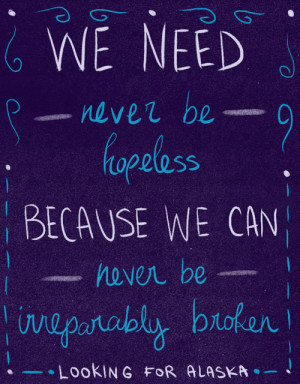 WE NEED
never be
hopeless
BECAUSE WE CAN
never be
irreparably broken
LOOKING FOR ALASKA